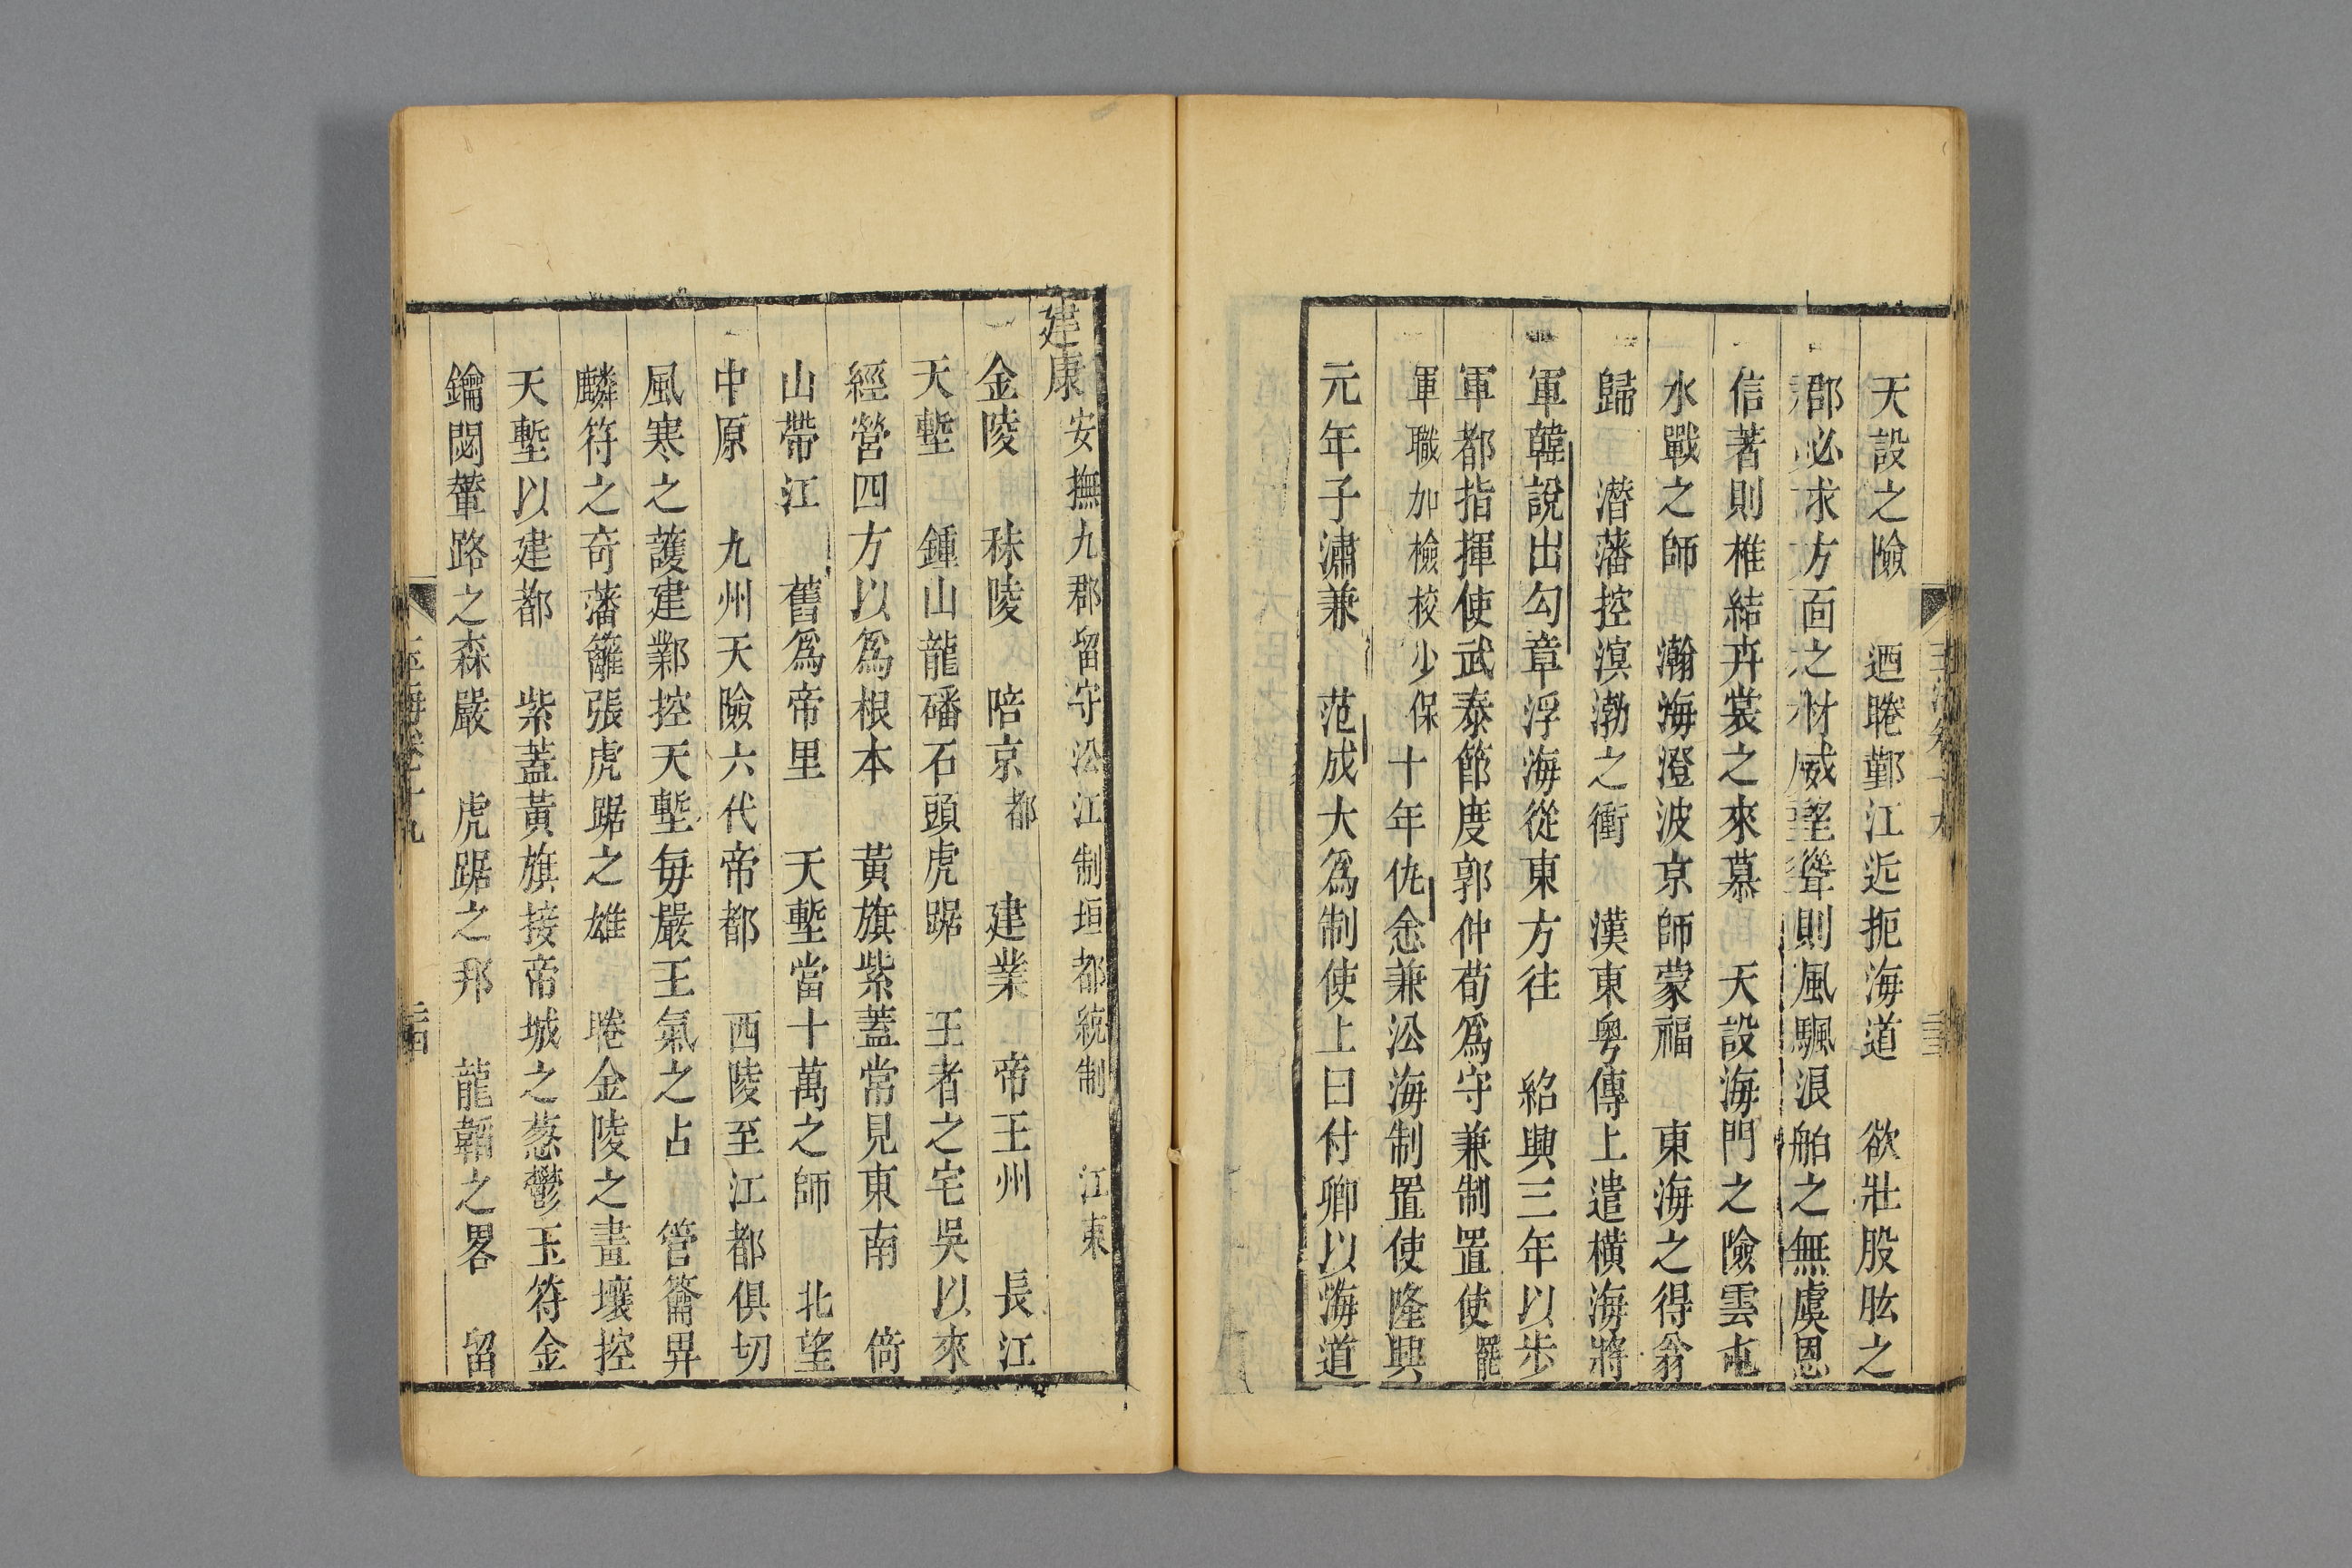 天設之險　迺睠鄞江近扼海道　欲壯股肱之
郡必求方面之材威望聳則風颿浪舶之無虞恩
信著則椎結卉裳之來慕　天設海門之險雲屯
水戰之師　瀚海澄波京師蒙福　東海之得翁
歸　濳藩控溟渤之衝　漢東粤傳上遣橫海將
軍韓說出勾章浮海從東方往　紹興三年以步
軍都指揮使武泰節度郭仲荀爲守兼制置使罷
軍職加檢校少保十年仇悆兼㳂海制置使隆興
元年子潚兼　范成大爲制使上曰付卿以海道
建康安撫九郡留守㳂江制垣都統制　江東
金陵　秣陵　陪京都　建業　帝王州　長江
天塹　鍾山龍磻石頭虎踞　王者之宅吳以來
經營四方以爲根本　黃旗紫蓋常見東南　倚
山帶江　舊爲帝里　天塹當十萬之師　北望
中原　九州天險六代帝都　西陵至江都俱切
風寒之護建鄴控天塹每嚴王氣之占　管籥畀
麟符之奇藩籬張虎踞之雄　睠金陵之畫壤控
天塹以建都　紫蓋黃旗接帝城之葱鬱玉符金
鑰閟輦路之森嚴　虎踞之邦　龍韜之畧　留
玉海卷十九